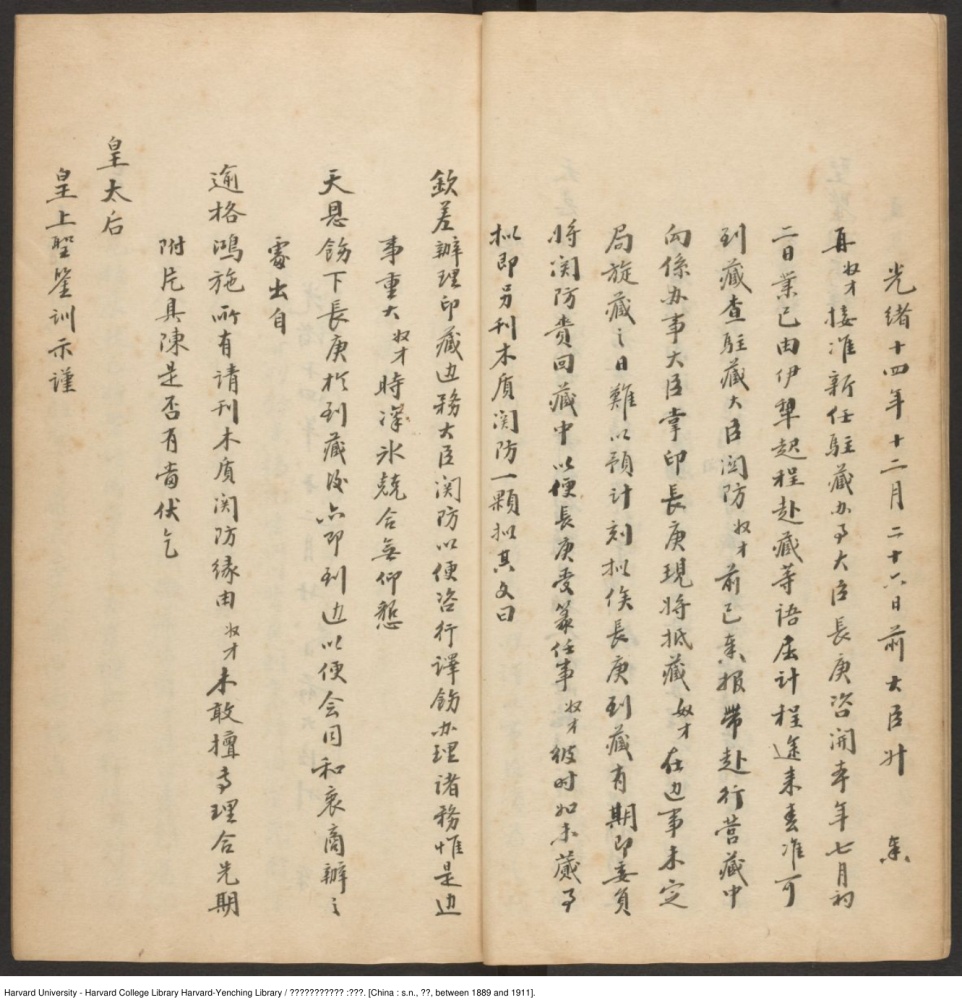 光緒十四年十二月二十六日前大臣升 奏
再奴才接准新任駐藏办事大臣長庚咨開本年七月初
二日業已由伊犁起程赴藏等語屈計程途来春准可
到藏查駐藏大臣関防奴才前已奏報帶赴行營藏中
向係办事大臣掌印長庚現將抵藏奴才在边事未定
局旋藏之日難以預計刻拟俟長庚到藏有期即委員
將関防賫回藏中以便長庚受篆任事奴才彼时如未蕆事
拟即另刊木质関防一顆拟其文曰
欽差辦理印藏边務大臣関防以便咨行譯飭办理諸務惟是边
事重大奴才時深氷兢合無仰懇
天恩飭下長庚於到藏後亦即到边以便会同和衷商辦之
處出自
逾格鴻施所有請刊木质関防緣由奴才未敢擅專理合先期
附片具陳是否有當伏乞
皇太后
皇上聖鉴訓示謹
Harvard University - Harvard College Library Harvard-Yenching Library / ??????????? :???. [China : s.n., ??, between 1889 and 1911].